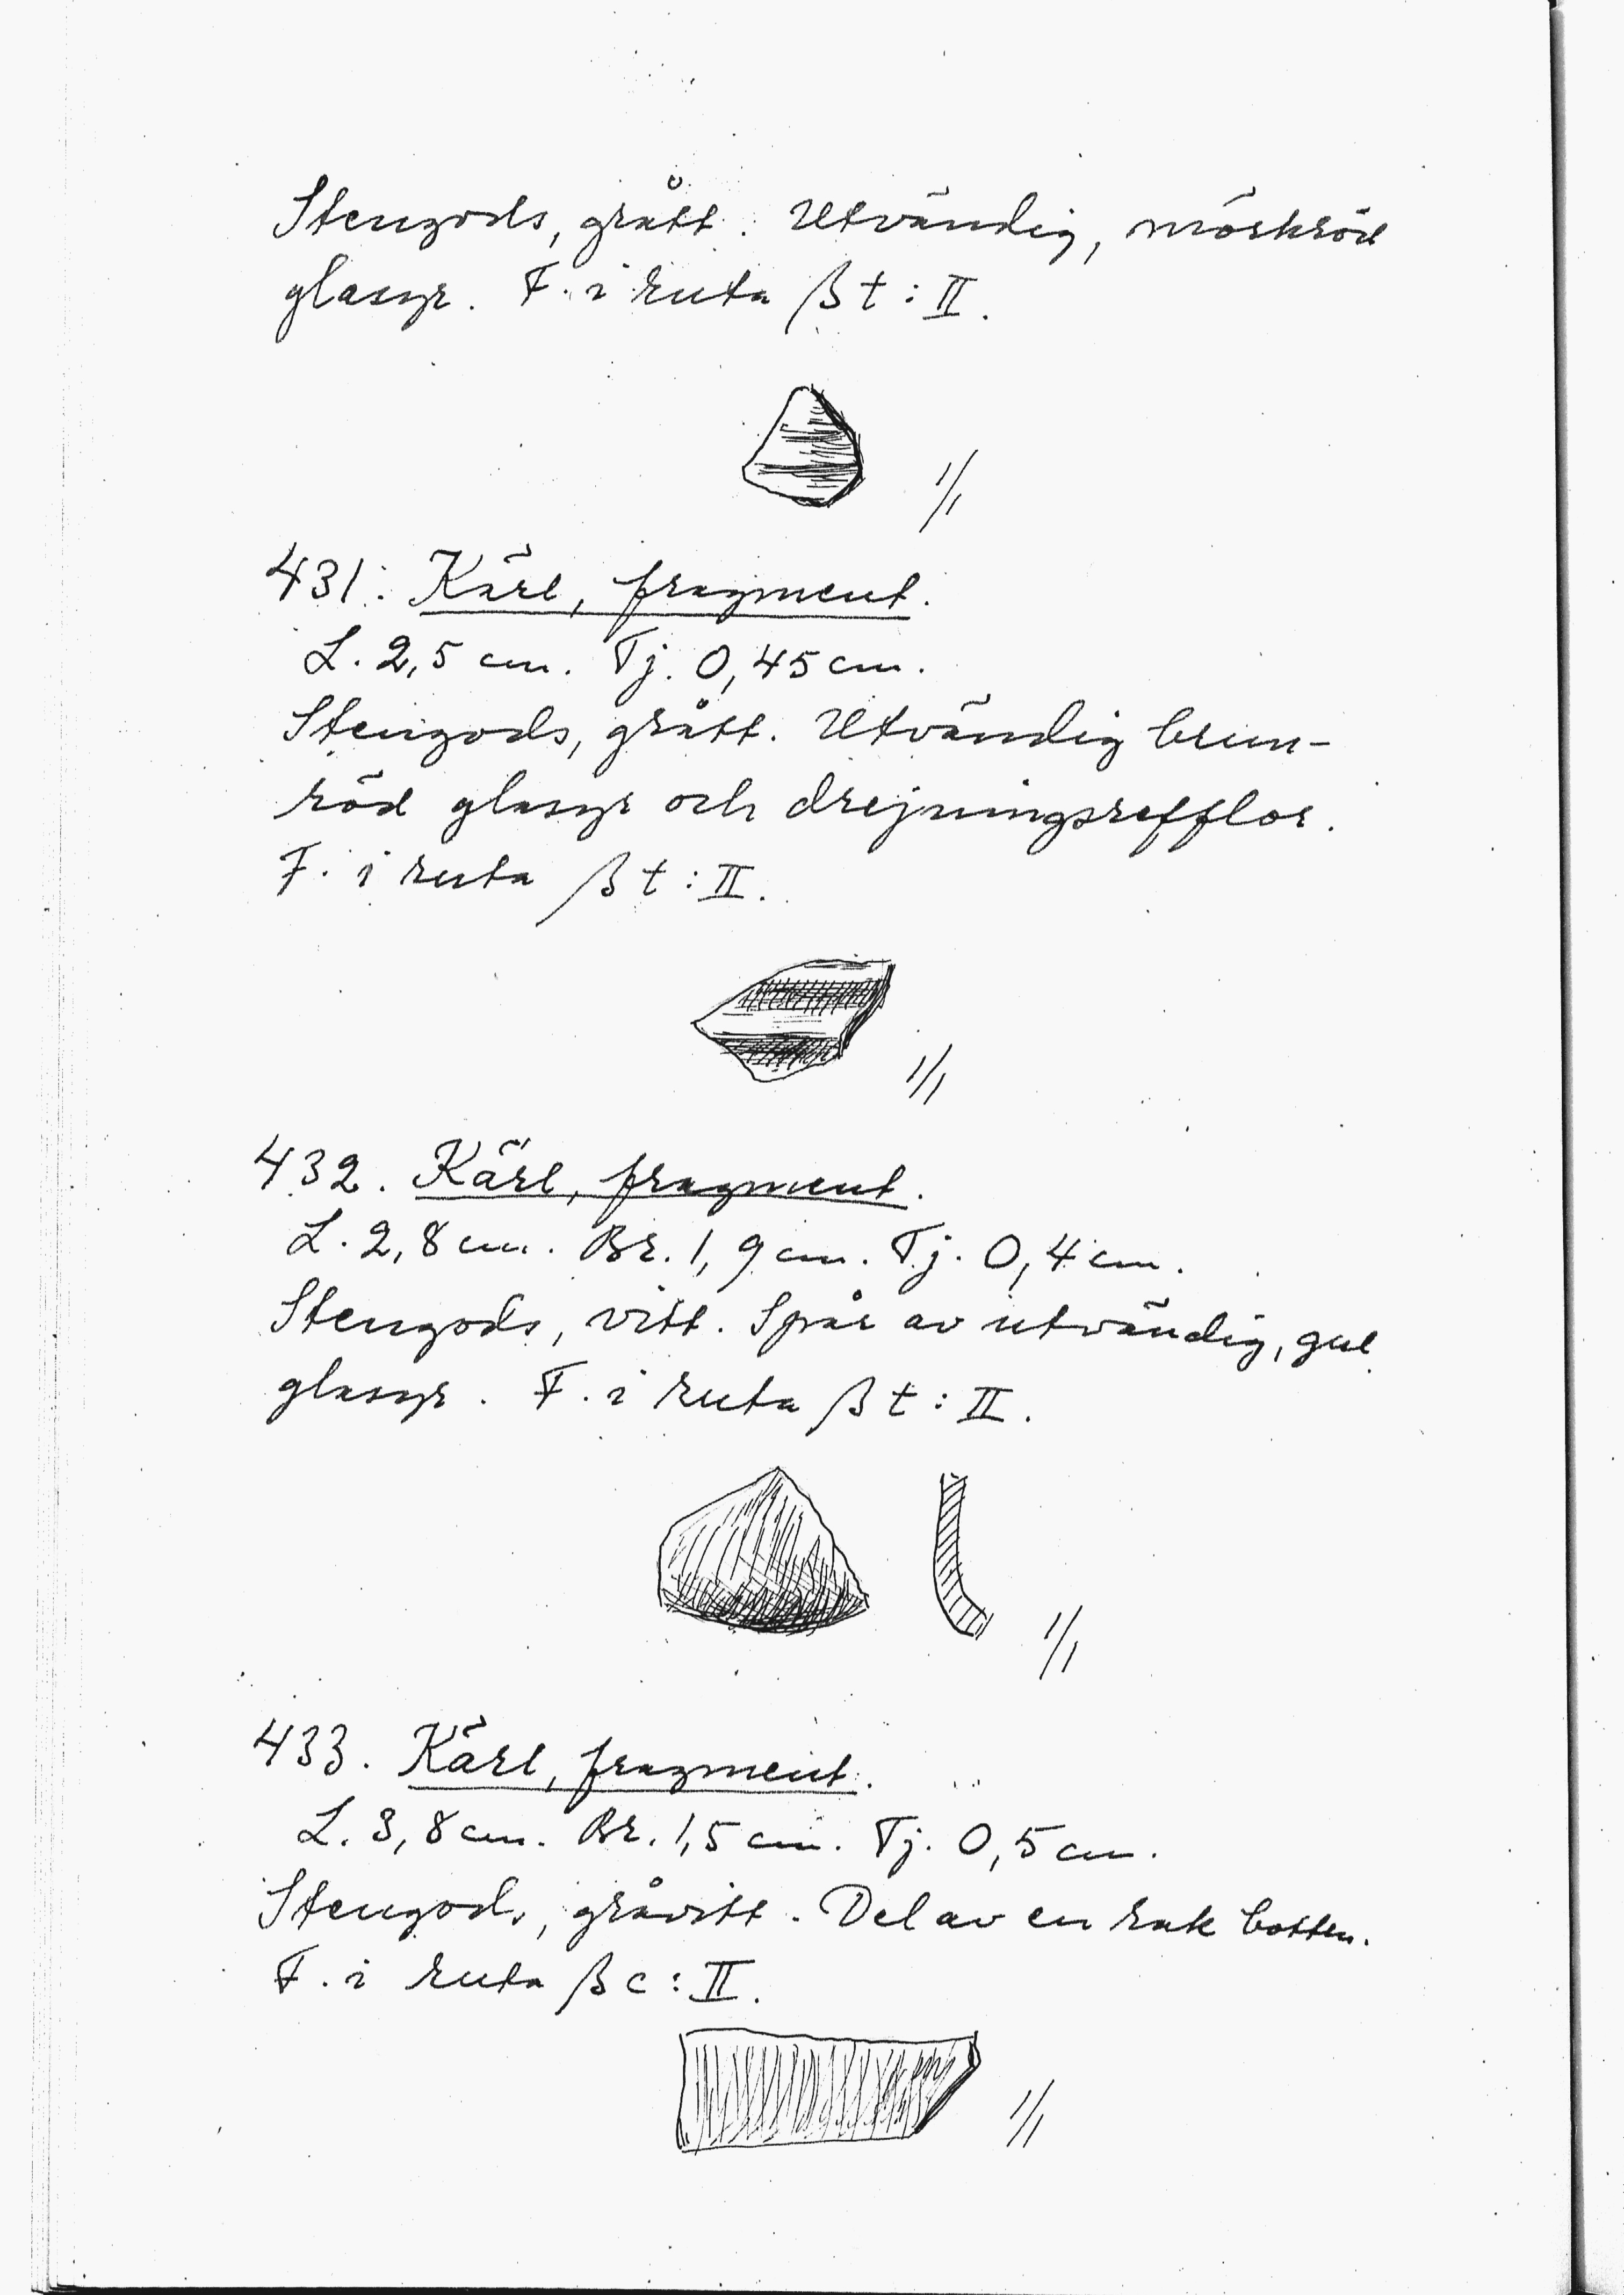 Stengods, grått. Utvändig, mörkröd
glasyr. F. i ruta βt:II.
1/1
431. Kärl, fragment.
L. 2,5 cm. Tj. 0,45 cm.
Stengods, grått. Utvändig brun-
röd glasyr och drejningsrefflor.
F. i ruta βt:II.
1/1
432. Kärl, fragment.
L. 2,8 cm. Br. 1,9 cm. Tj. 0,4 cm.
Stengods, vitt. Spår av utvändig, gul
glasyr. F. i ruta βt:II.
1/1
433. Kärl, fragment.
L. 3,8 cm. Br. 1,5 cm. Tj. 0,5 cm.
Stengods, gråvitt. Del av en rak botten.
F. i ruta βc:II.
1/1